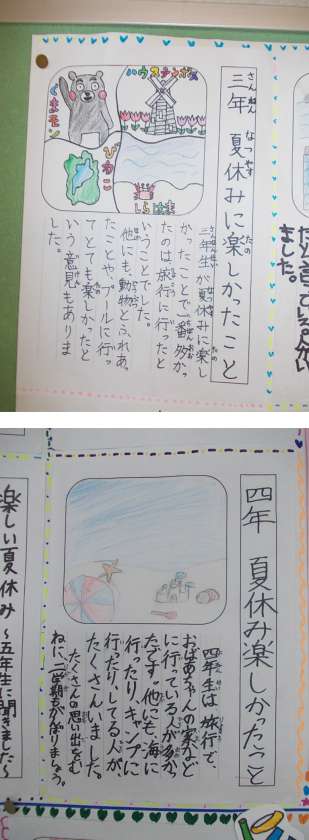 三年 夏休みに楽しかったこと
さんねん なつやす たの
ハウステンボス
くまモン
びわこ
しらはま
三年生が夏休みに楽し
かったことで一番多か
たのは旅行に行ったと
いうことでした。
他にも、動物とふれあっ
たことやプールに行っ
てとても楽しかったと
いう意見もありま
した。
ました。
四年 夏休み楽しかったこと
四年生は、旅行で、
おばあちゃんの家など
に行っている人が多かっ
たです。他にも、海に
行ったり、キャンプに
行ったり、してる人が、
たくさんいました。
たくさんの思い出をむ
ねに、二学期もがんばりましょう。
楽しい夏休み 〜五年生に聞きました〜